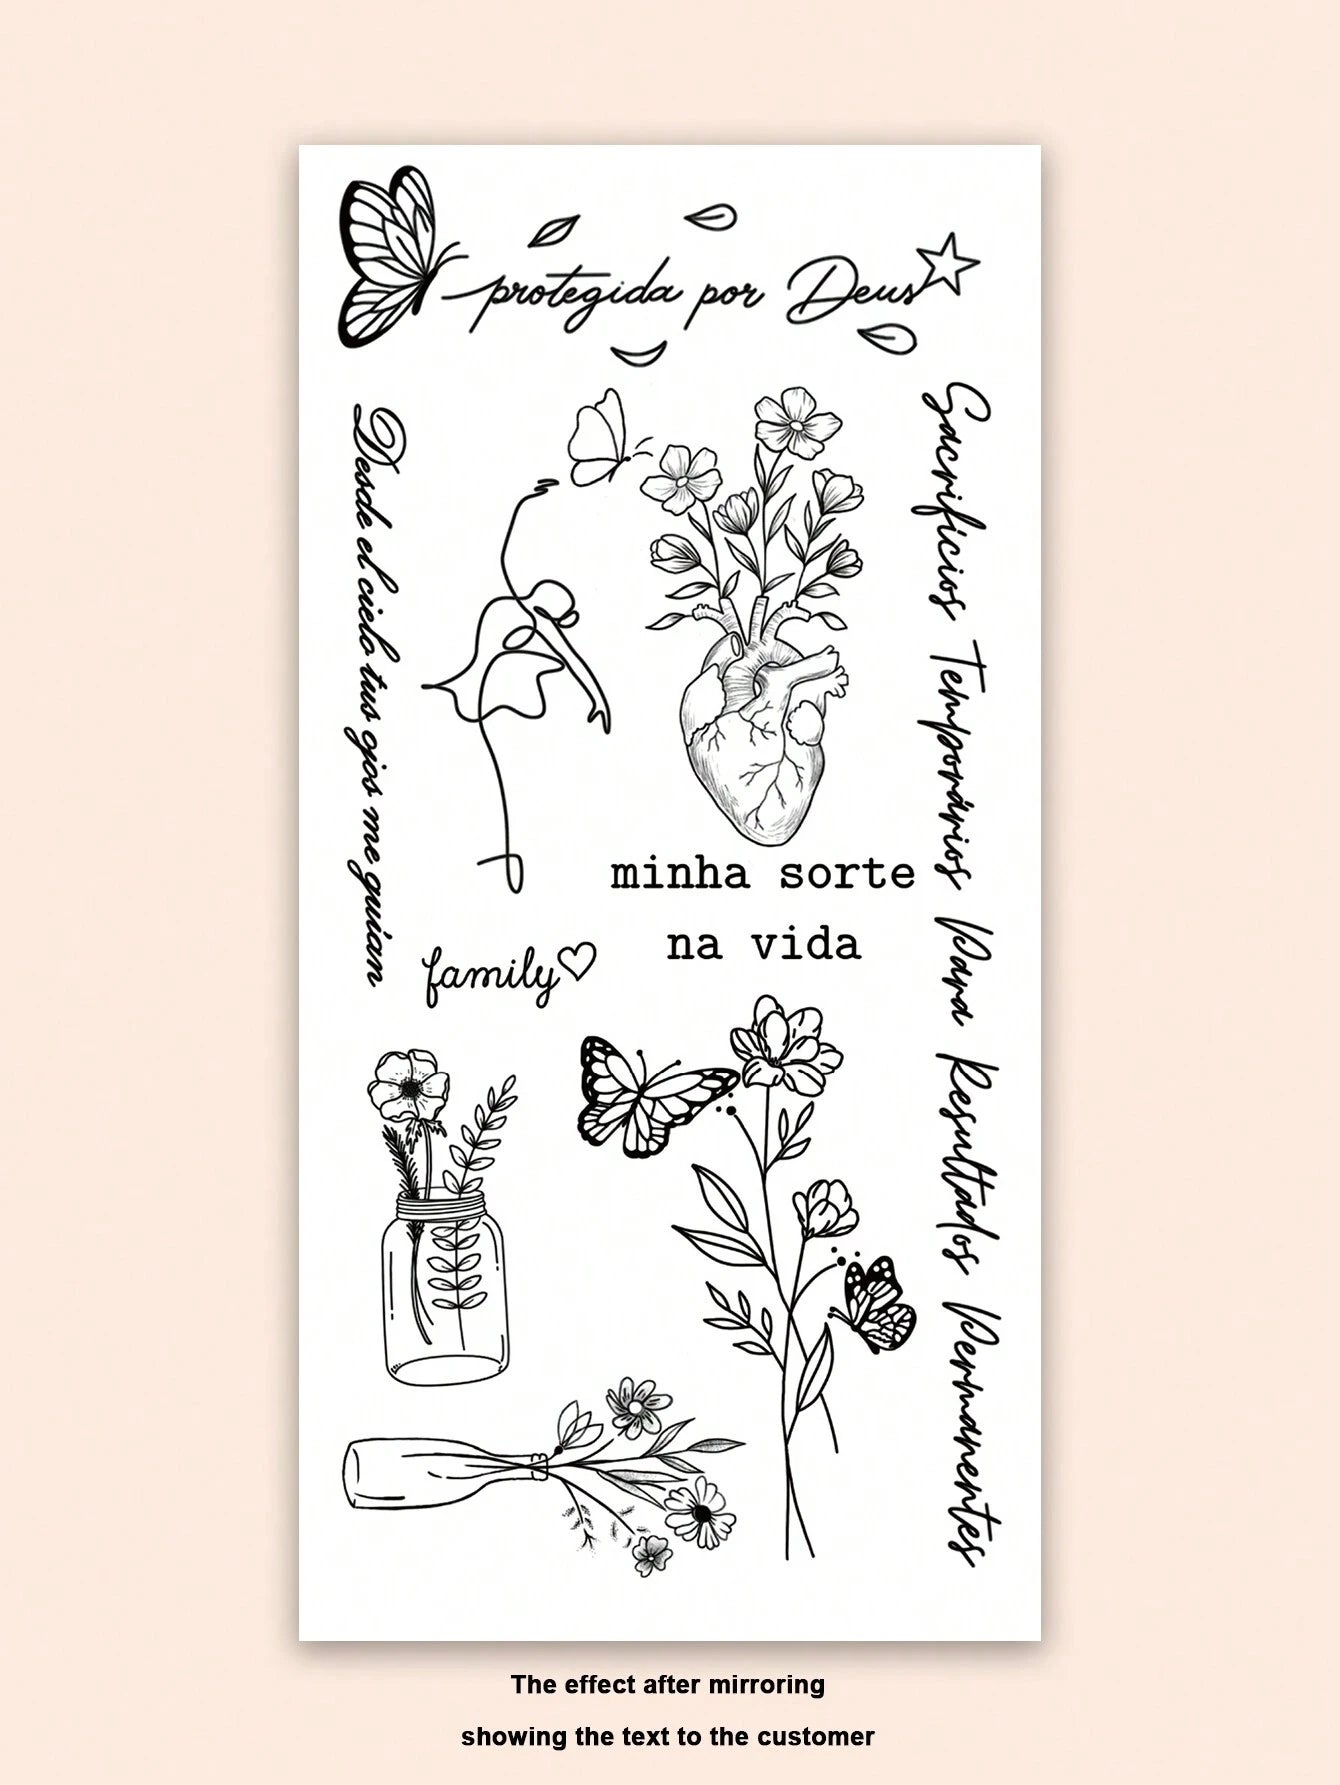 protegida por Deus
Desde el cielo tus ojos me guían
Sacrifícios Temporários Para Resultados Permanentes
minha sorte
na vida
family
The effect after mirroring
showing the text to the customer